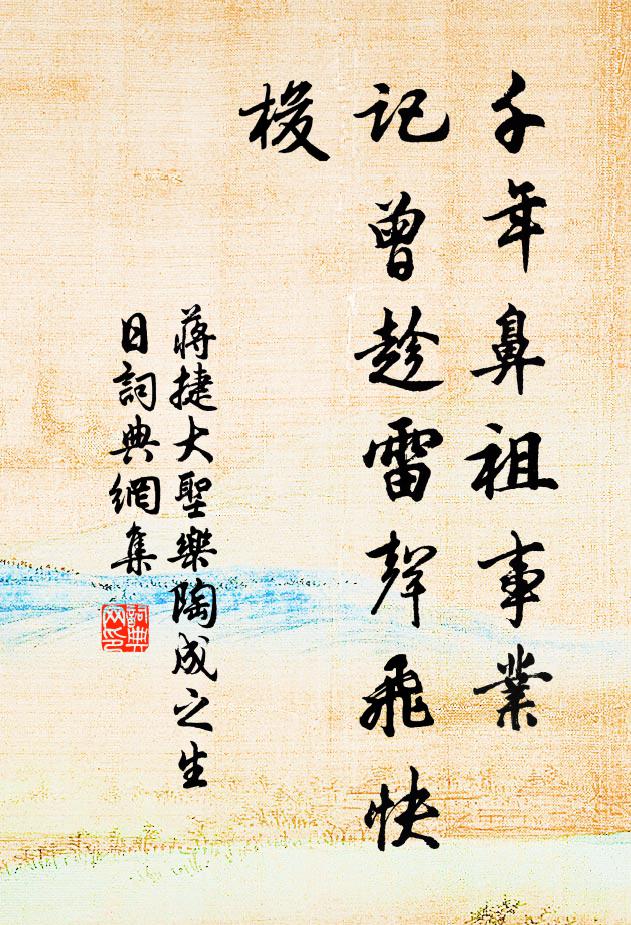 千年鼻祖事業
記曾趁雷聲飛快
梭
蔣捷大聖樂陶成之生
日詞典網集
詞典
网印